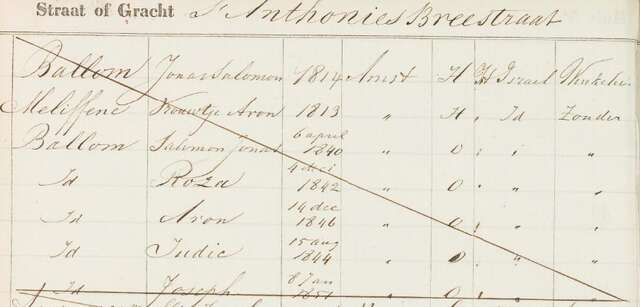 Straat of Gracht St Anthonies Breestraat
Ballom Jonas Salomon 1814 Amst H H Israel Winkelier
Meliffene Vrouwtje Aron 1813 " H , Id Zonder
6 april
Ballom Salomon Jonas 1840 " O , " "
4 dec
Id Roza 1842 " O , " "
14 dec
Id Aron 1846 " O , " "
15 aug
Id Judic 1844 " O , " "
8 Jan
Id Joseph 1851 " O , " "